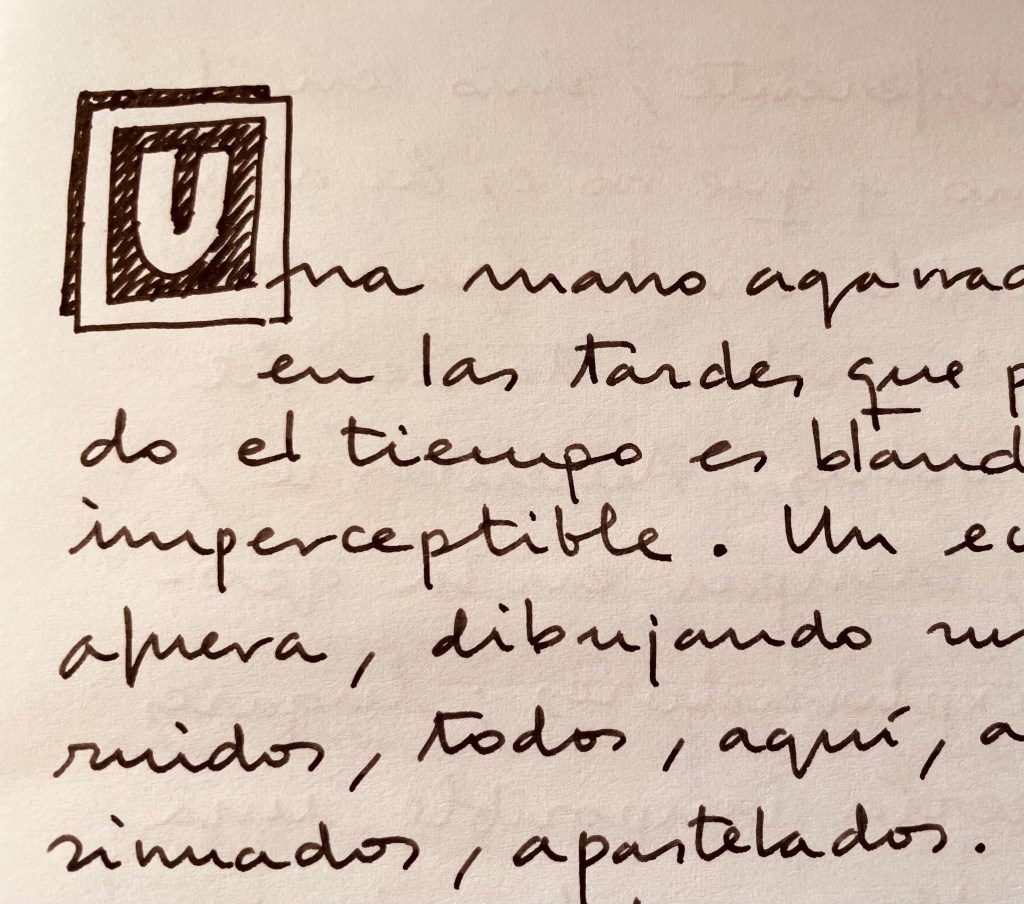 Una mano agarrad
en las tardes que p
do el tiempo es bland
imperceptible. Un ec
afuera, dibujando su
ruidos, todos, aquí, a
sinuados, apastelados.